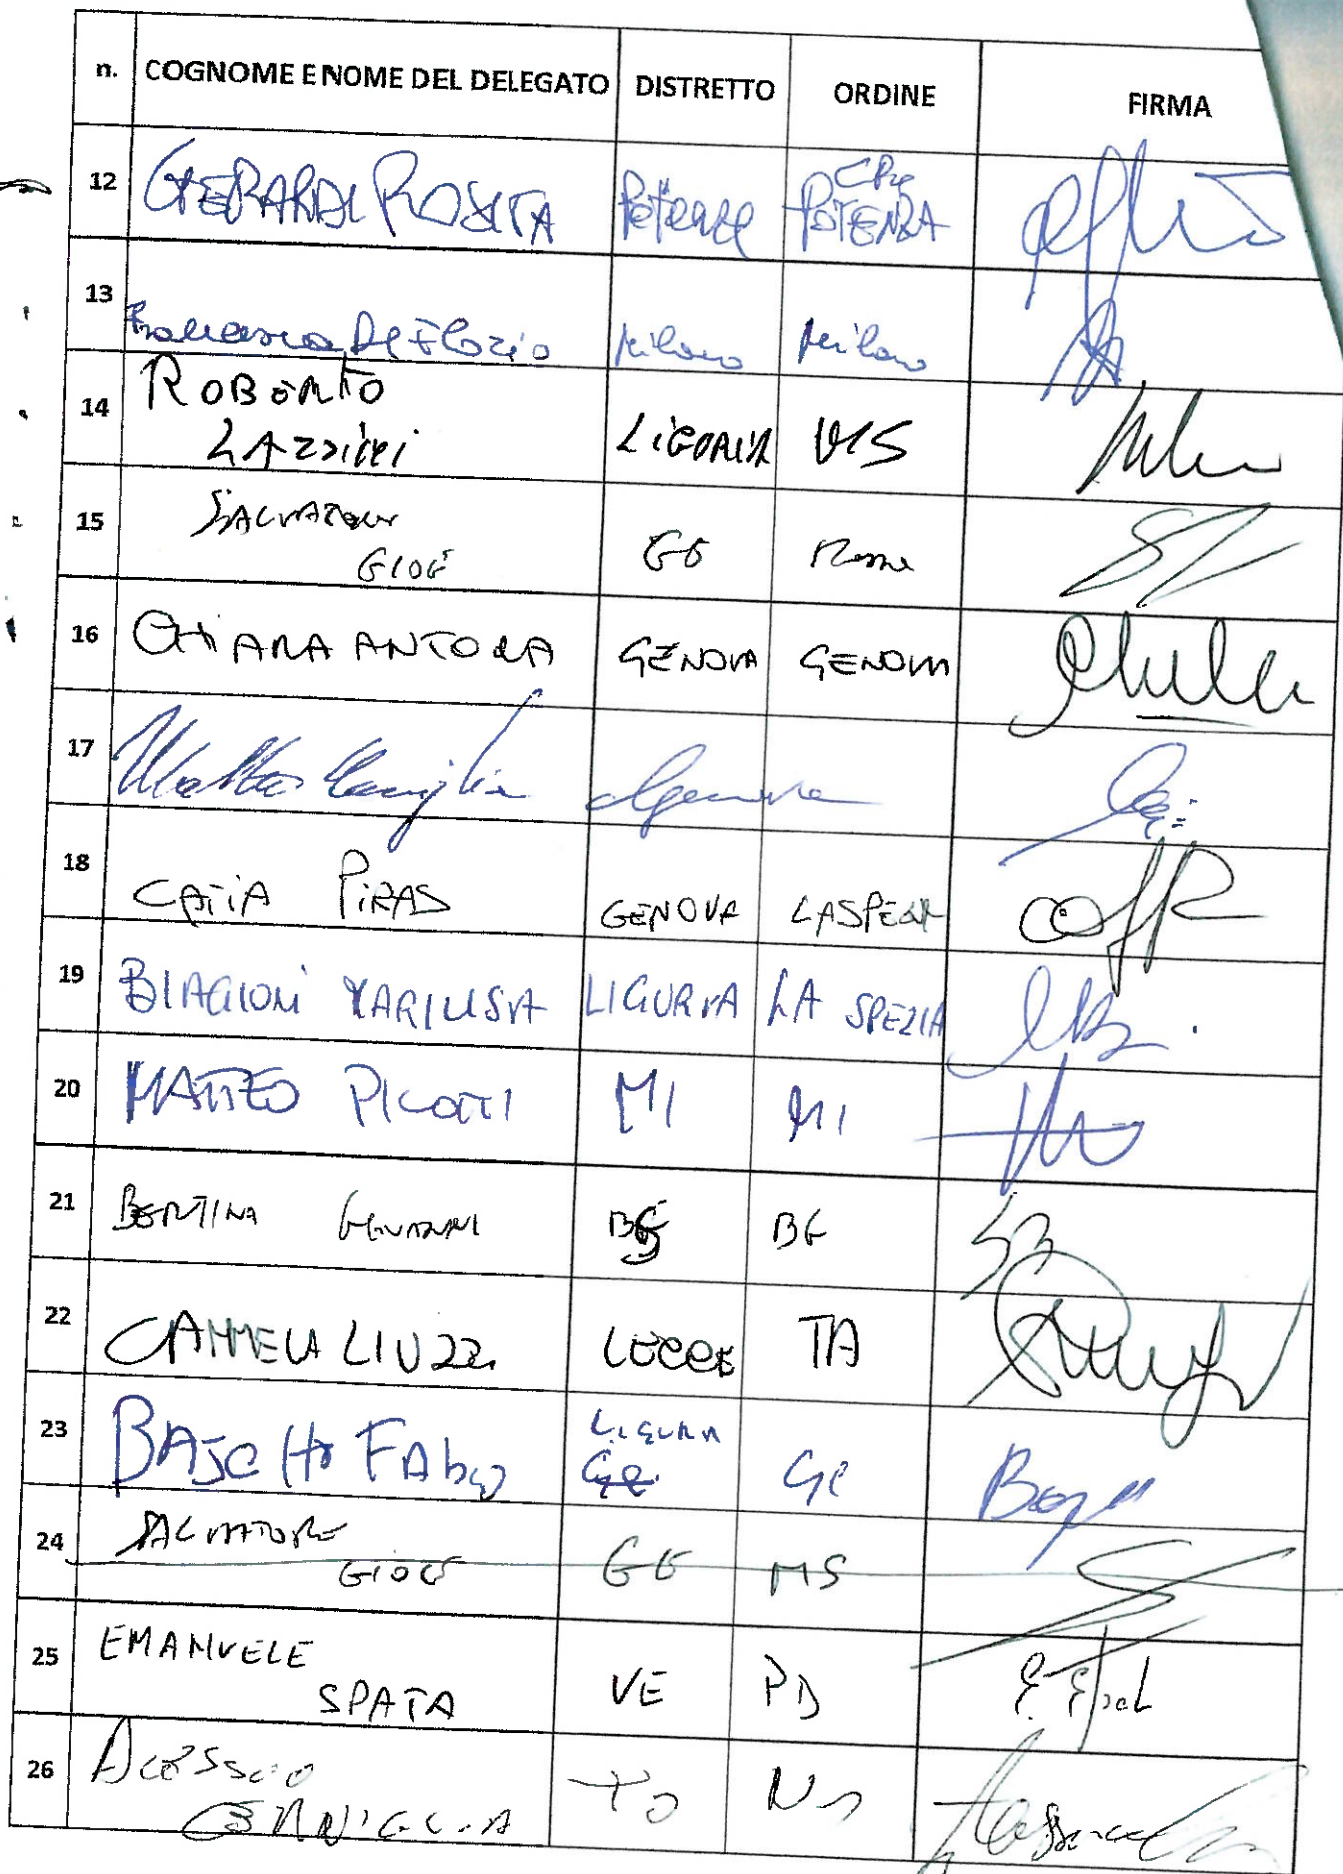 n. COGNOME E NOME DEL DELEGATO DISTRETTO ORDINE FIRMA
12 GERARDI ROSITA Potenza POTENZA
13 Francesca De Florio Milano Milano
14 ROBERTO
LAZZINI LIGURIA MS
15 SALVATORE
GIOÈ GE
16 CHIARA ANTOLA GENOVA GENOVA
17 Matteo Caniglia Genova
18 CATIA PIRAS GENOVA LA SPEZIA
19 BIAGIONI MARILISA LIGURIA LA SPEZIA
20 MATTEO PICOTTI MI MI
21 BERTINA GIOVANNI BG BG
22 CARMELA LIUZZI LECCE TA
23 BAJCHO FABIO LIGURIA
Ge Ge
24 SALVATORE
GIOÈ GE MS
25 EMANUELE
SPATA VE PD
26 Alessio
CERNIGLIA TO No